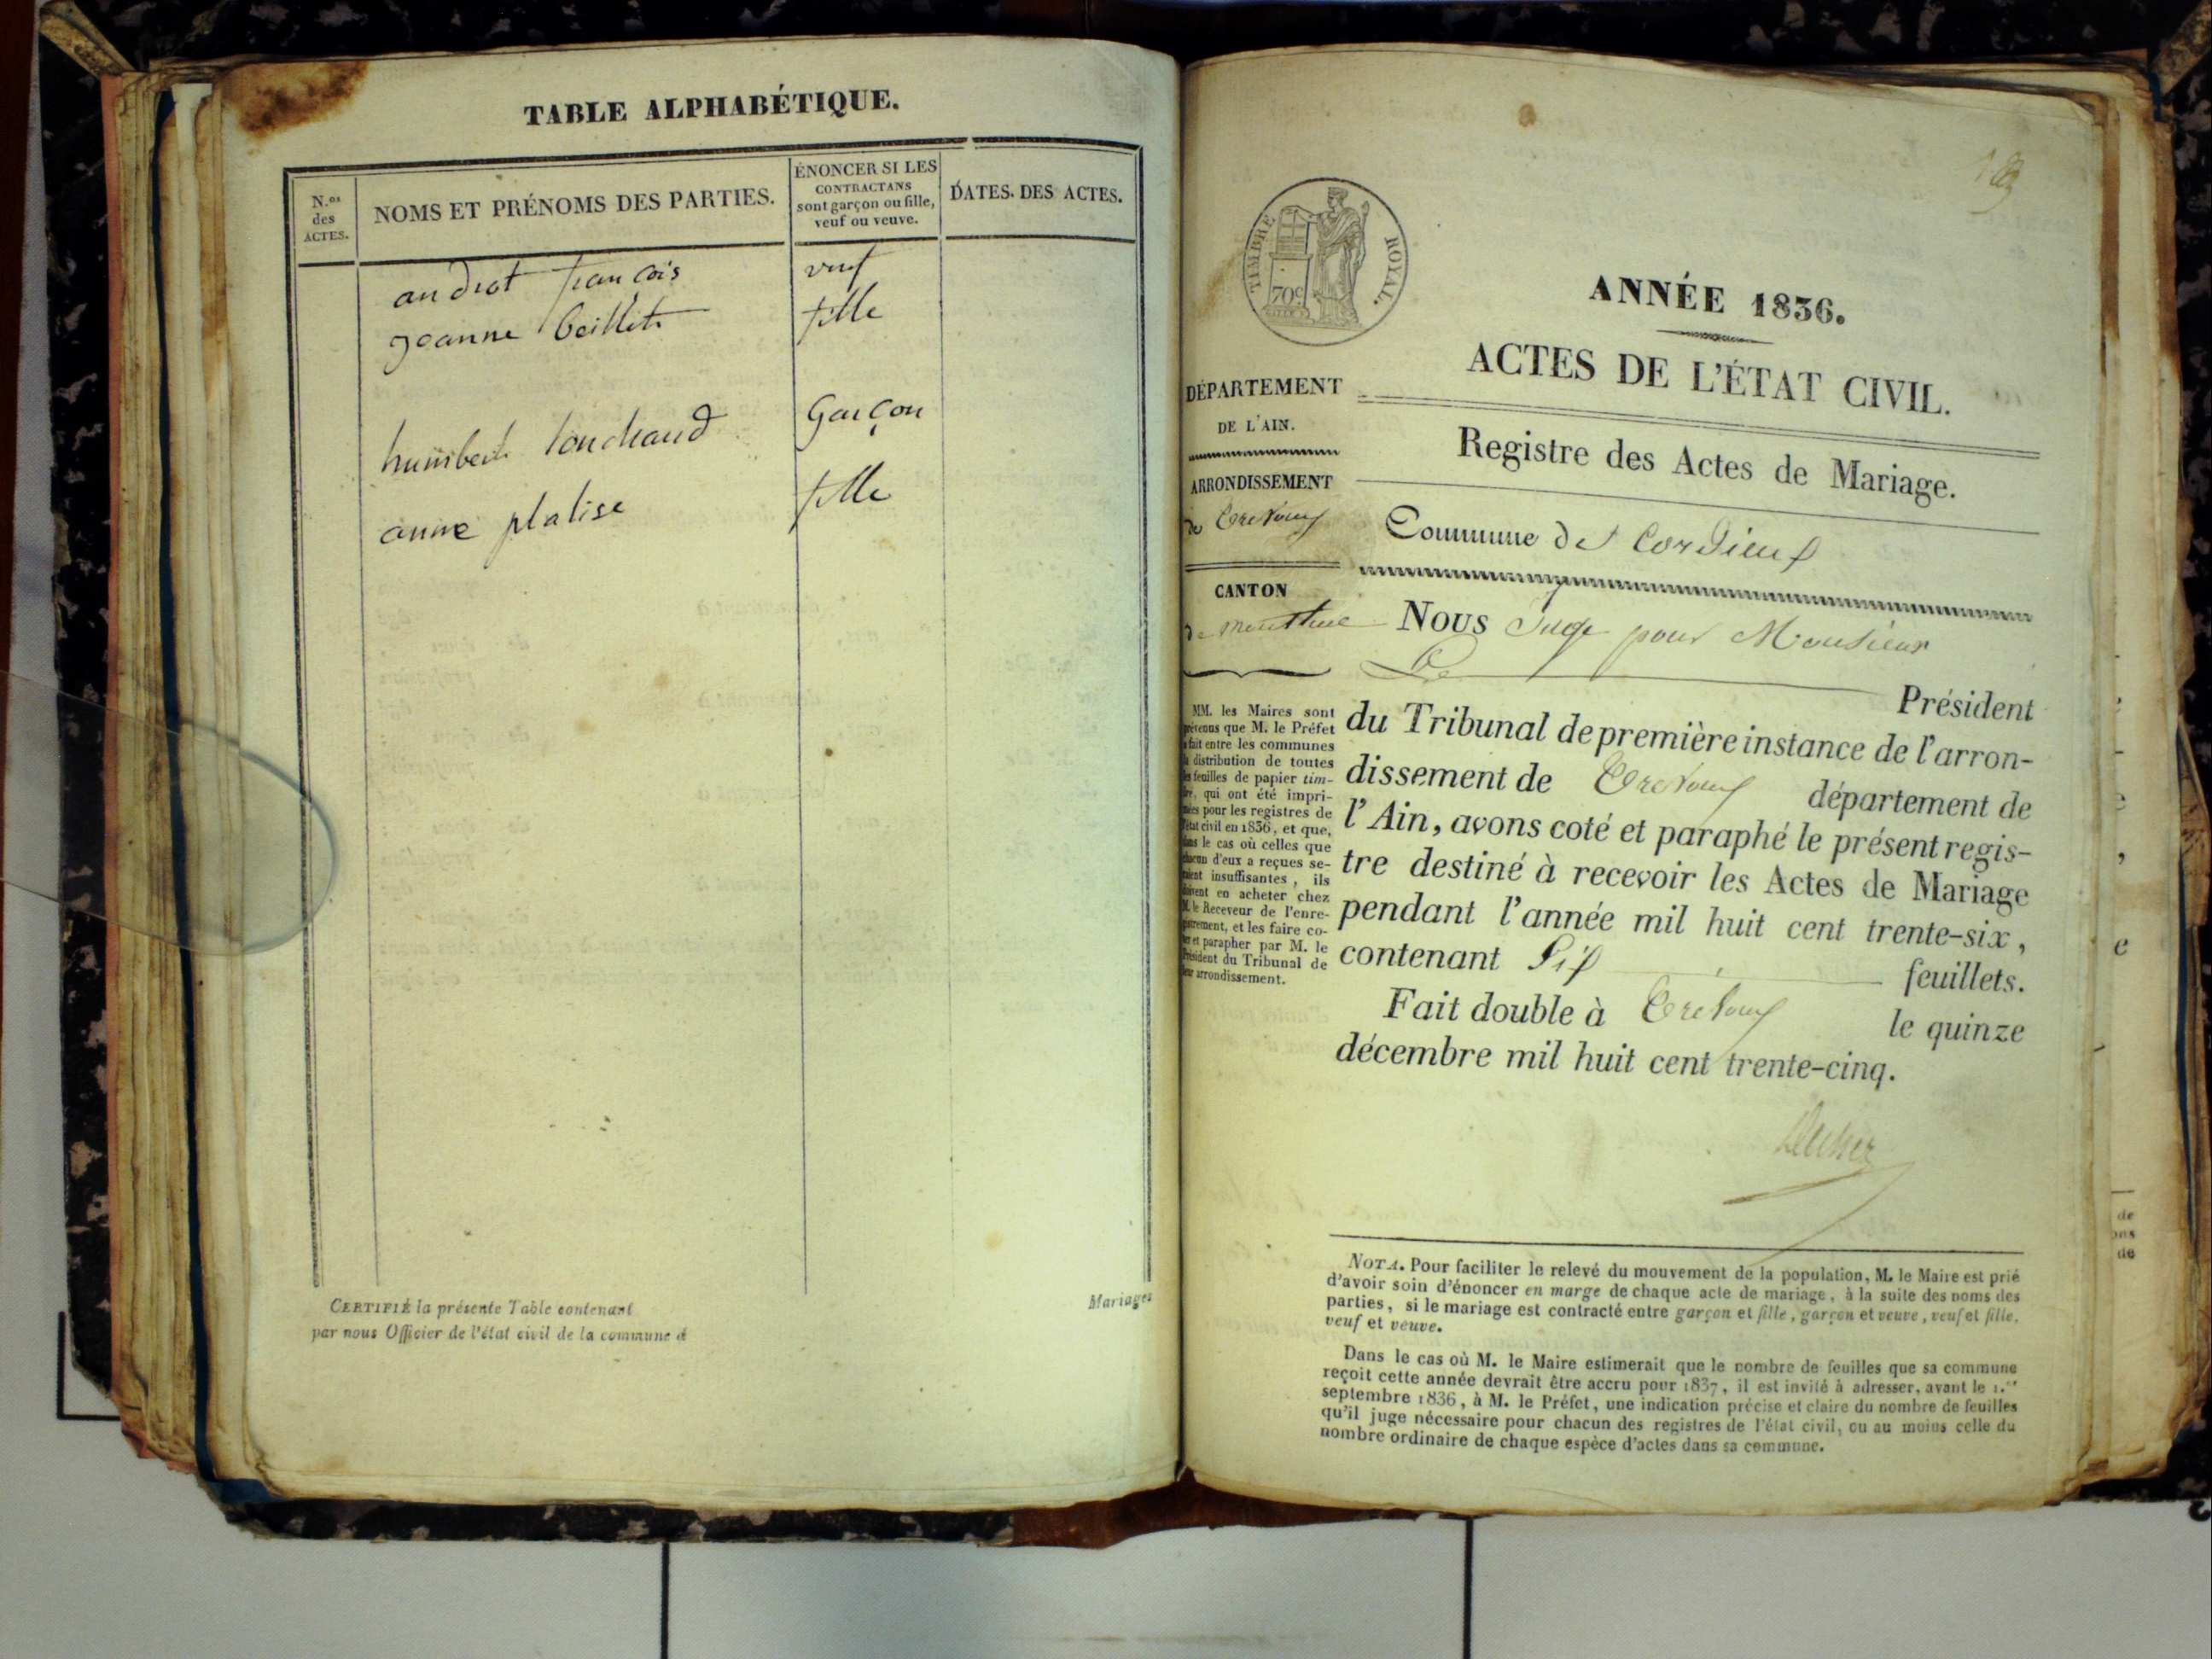 TABLE ALPHABÉTIQUE.
N.os
des
ACTES.
NOMS ET PRÉNOMS DES PARTIES.
ÉNONCER SI LES
CONTRACTANS
sont garçon ou fille,
veuf ou veuve.
DATES. DES ACTES.
androt francois veuf
jeanne fille
humbert garçon
anne platise fille
CERTIFIÉ la présente Table contenant
par nous Officier de l'état civil de la commune d
Mariages
TIMBRE ROYAL.
70c
ANNÉE 1836.
ACTES DE L'ÉTAT CIVIL.
Registre des Actes de Mariage.
DÉPARTEMENT
DE L'AIN.
ARRONDISSEMENT
de Trevoux
CANTON
Commune de Cordieux
Nous Juge pour Monsieur
Le Président
du Tribunal de première instance de l'arron-
dissement de Trevoux département de
l'Ain, avons coté et paraphé le présent regis-
tre destiné à recevoir les Actes de Mariage
pendant l'année mil huit cent trente-six,
contenant Six feuillets.
Fait double à Trévoux le quinze
décembre mil huit cent trente-cinq.
MM. les Maires sont
prévenus que M. le Préfet
a fait entre les communes
la distribution de toutes
les feuilles de papier tim-
bré, qui ont été impri-
mées pour les registres de
l'état civil en 1836, et que,
dans le cas où celles que
chacun d'eux a reçues se-
raient insuffisantes, ils
doivent en acheter chez
M. le Receveur de l'enre-
gistrement, et les faire co-
ter et parapher par M. le
Président du Tribunal de
leur arrondissement.
NOTA. Pour faciliter le relevé du mouvement de la population, M. le Maire est prié
d'avoir soin d'énoncer en marge de chaque acte de mariage, à la suite des noms des
parties, si le mariage est contracté entre garçon et fille, garçon et veuve, veuf et fille,
veuf et veuve.
Dans le cas où M. le Maire estimerait que le nombre de feuilles que sa commune
reçoit cette année devrait être accru pour 1837, il est invité à adresser, avant le 1.er
septembre 1836, à M. le Préfet, une indication précise et claire du nombre de feuilles
qu'il juge nécessaire pour chacun des registres de l'état civil, ou au moins celle du
nombre ordinaire de chaque espèce d'actes dans sa commune.